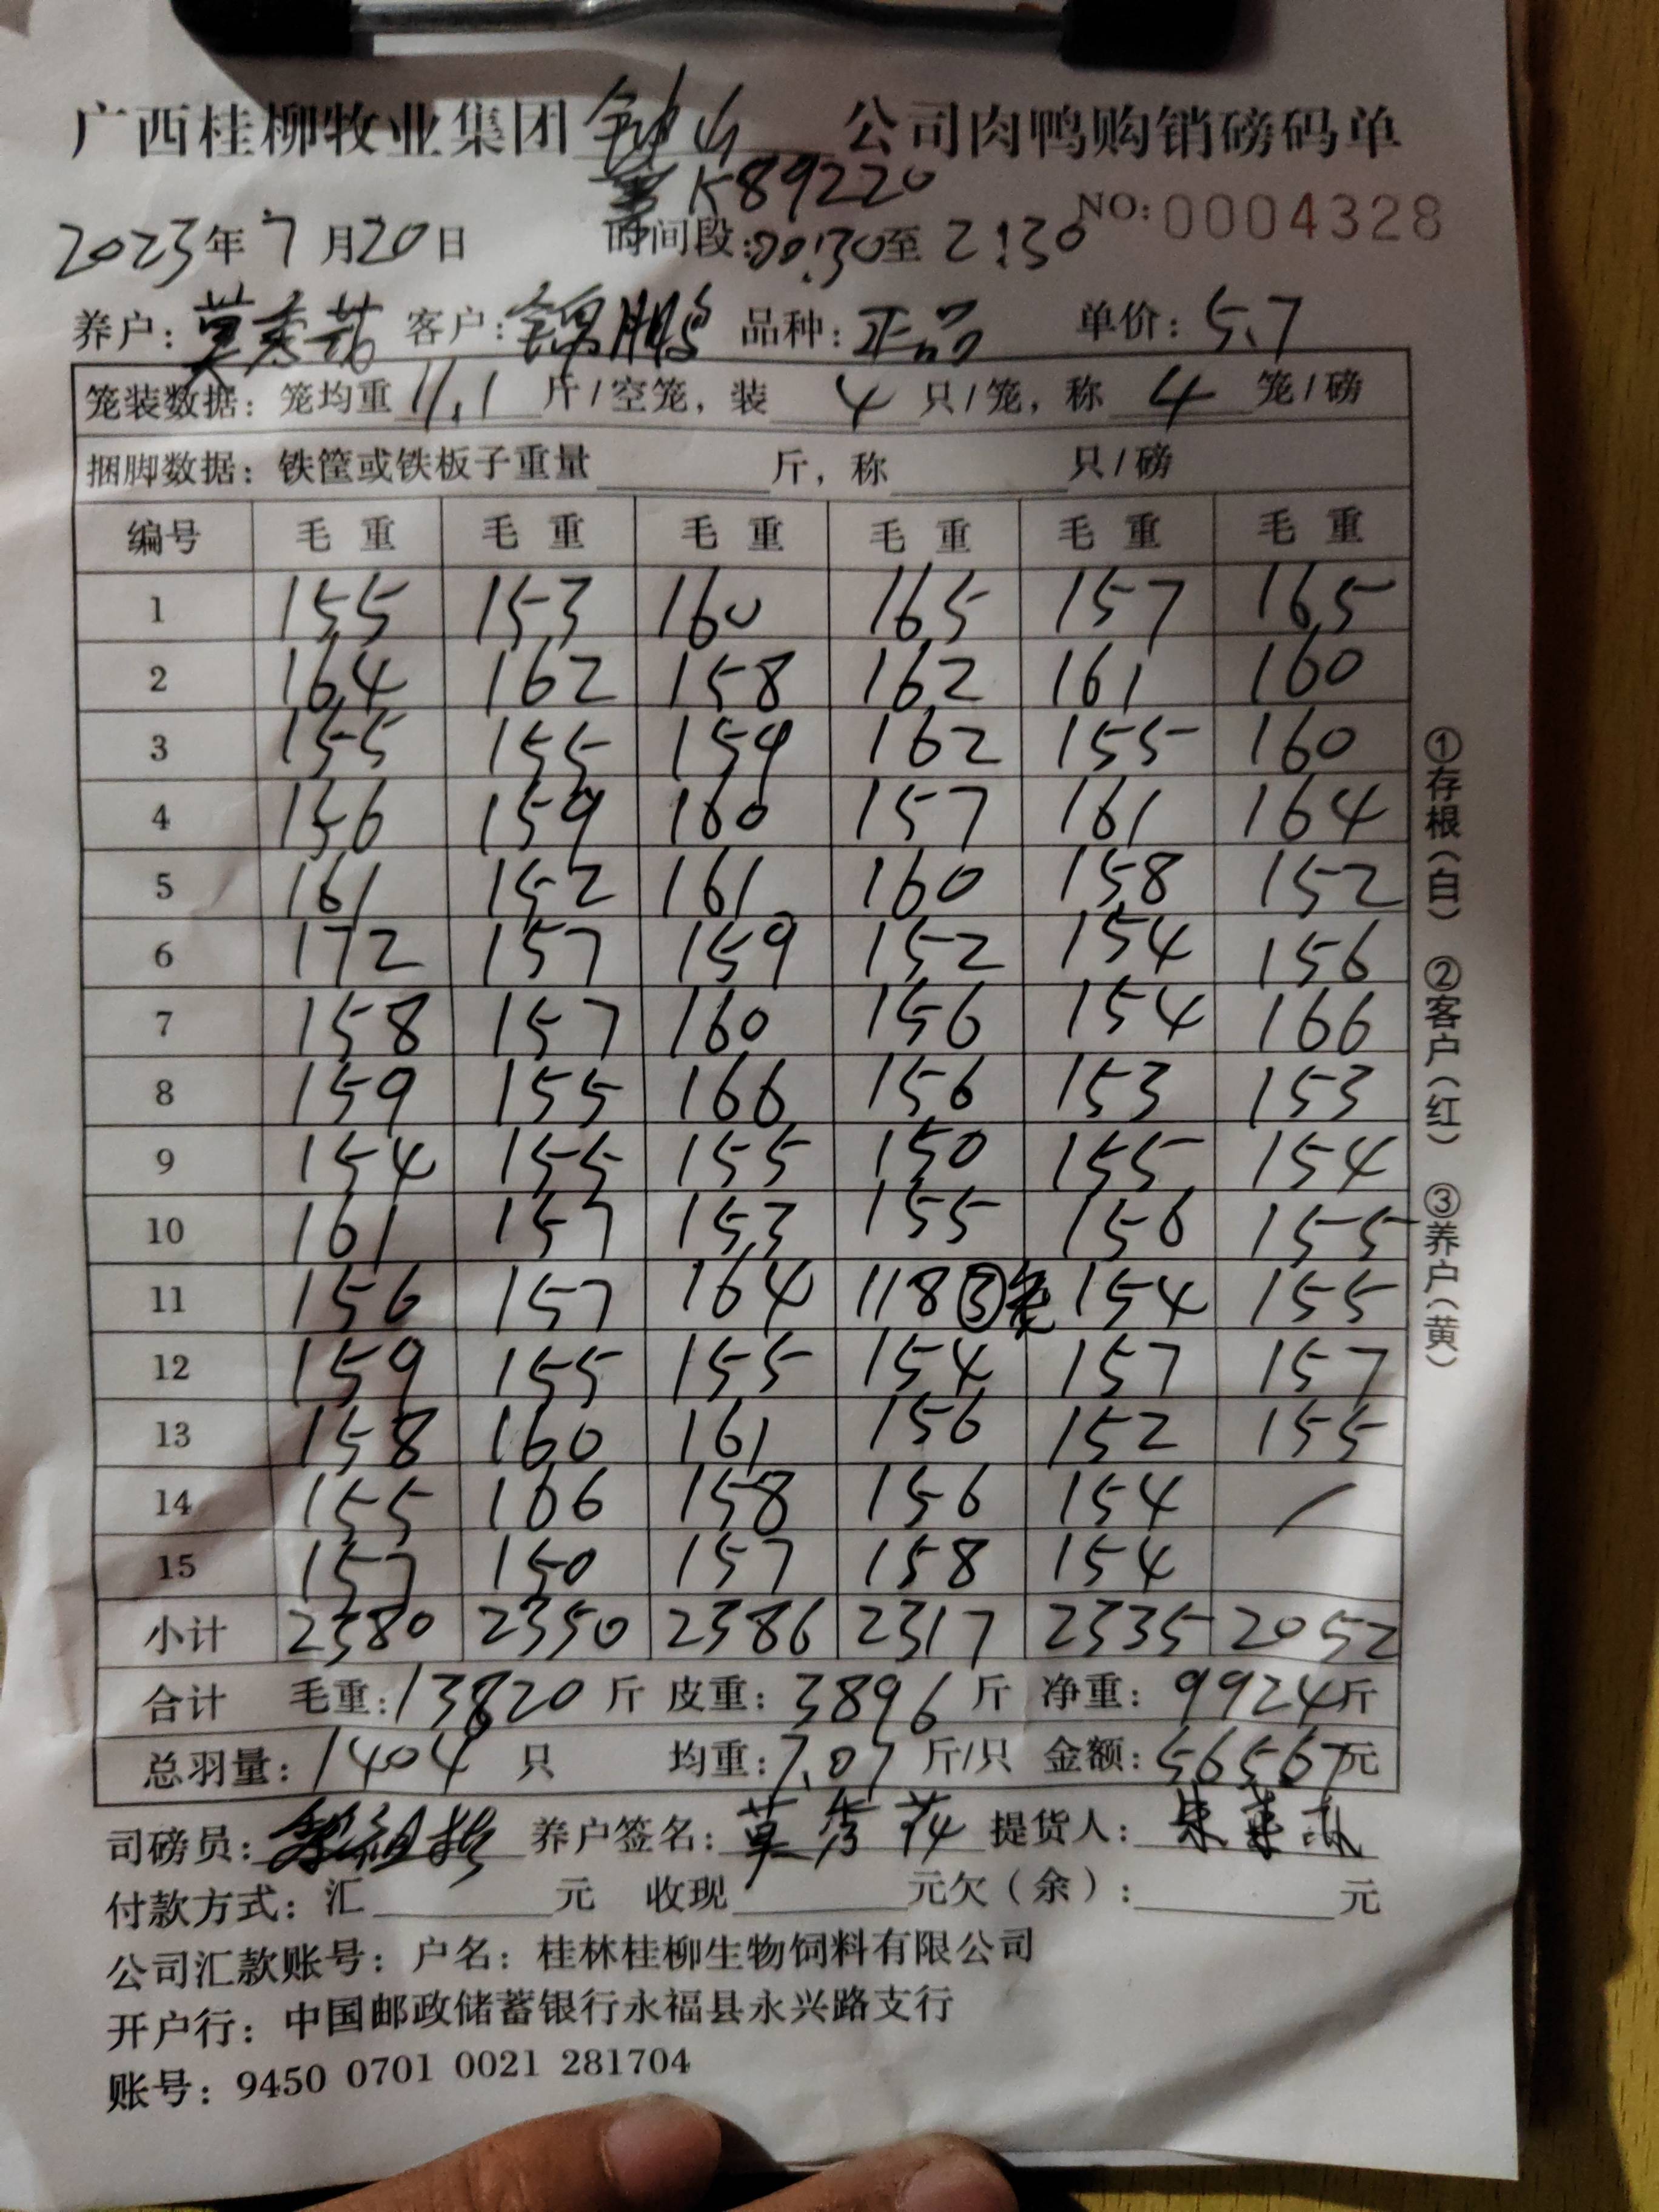 广西桂柳牧业集团 钟山 公司肉鸭购销磅码单
K89220
NO: 0004328
2023年 7 月 20 日 时间段: 00:30 至 2:30
养户: 莫秀 客户: 锦鹏 品种: 正品 单价: 5.7
笼装数据: 笼均重 11.1 斤/空笼, 装 4 只/笼, 称 4 笼/磅
捆脚数据: 铁筐或铁板子重量 斤, 称 只/磅
编号 毛重 毛重 毛重 毛重 毛重 毛重
1 155 153 160 165 157 165
2 164 162 158 162 161 160
3 155 155 159 162 155 160
4 156 159 160 157 161 164
5 161 152 161 160 158 152
6 172 157 159 152 154 156
7 158 157 160 156 154 166
8 159 155 166 156 153 153
9 154 155 155 150 155 154
10 161 157 153 155 156 155
11 156 157 164 118 ③笼 154 155
12 159 155 155 154 157 157
13 158 160 161 156 152 155
14 155 166 158 156 154 /
15 157 150 157 158 154
小计 2380 2350 2386 2317 2335 2052
合计 毛重: 13820 斤 皮重: 3896 斤 净重: 9924 斤
总羽量: 1404 只 均重: 7.07 斤/只 金额: 56567 元
司磅员: 养户签名: 莫秀 提货人:
付款方式: 汇 元 收现 元欠(余): 元
公司汇款账号: 户名: 桂林桂柳生物饲料有限公司
开户行: 中国邮政储蓄银行永福县永兴路支行
账号: 9450 0701 0021 281704
①存根(白) ②客户(红) ③养户(黄)